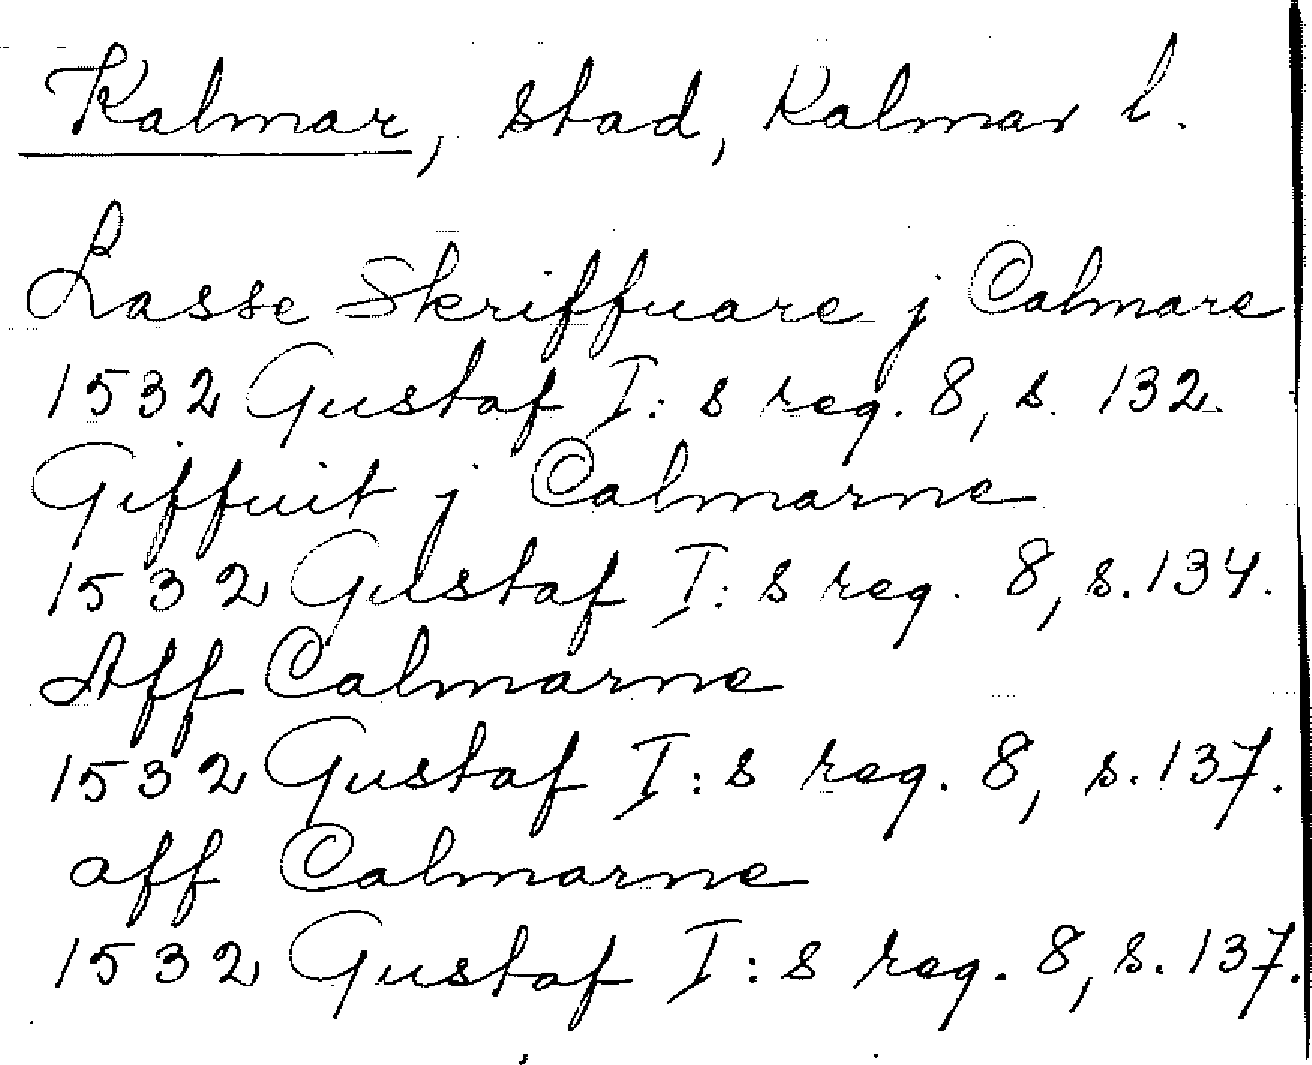 Kalmar, stad, Kalmar l.
Lasse Skriffuare j Calmare
1532 Gustaf I:s reg. 8, s. 132.
Giffuit j Calmarne
1532 Gustaf I:s reg. 8, s. 134.
Aff Calmarne
1532 Gustaf I:s reg. 8, s. 137.
aff Calmarne
1532 Gustaf I:s reg. 8, s. 137.